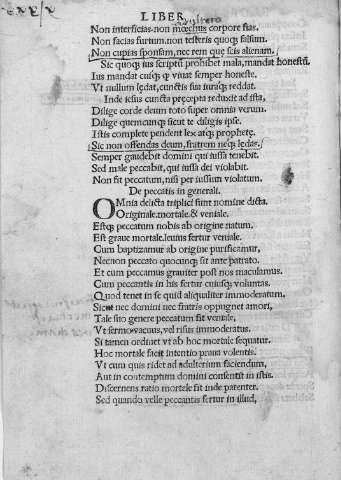 LIBER
adultero
Non interficias. non mœchus corpore fias.
Non facias furtum. non testeris quoq; falsum.
Non cupias sponsam, nec rem quę scis alienam.
Sic quoq; ius scriptū prohibet mala, mandat honestū.
Ius mandat cuiq; ꝙ viuat semper honeste.
Vt nullum lędat, cunctis sua iuraq; reddat.
Inde iesus cuncta pręcepta reduxit ad ista,
Dilige corde deum toto super omnia verum.
Dilige quemcunq; sicut te diligis ipse.
Istis complete pendent lex atq; prophetę.
Sic non offendas deum, fratrem neq; lędas.
Semper gaudebit domini qui iussa tenebit.
Sed male peccabit, qui iussa dei violabit.
Non fit peccatum, nisi per iussum violatum.
De peccatis in generali.
OMnia delicta triplici sunt nomine dicta.
Originale. mortale. & veniale.
Estq; peccatum nobis ab origine natum.
Est graue mortale. leuius fertur veniale.
Cum baptizamur ab origine purificamur,
Necnon peccato quocunq; sit ante patrato.
Et cum peccamus grauiter post nos maculamus.
Cum peccantis in his fertur cuiusq; voluntas.
Quod tenet in se quid aliqualiter immoderatum,
Sicut nec domini nec fratris oppugnet amori,
Tale suo genere peccatum fit veniale,
Vt sermo vacuus, vel risus immoderatus.
Si tamen ordinet vt ab hoc mortale sequatur.
Hoc mortale facit intentio praua volentis.
Vt cum quis ridet ad adulterium faciendum,
Aut in contemptum domini consentit in istis.
Discernens ratio mortale fit inde patenter.
Sed quando velle peccantis fertur in illud,